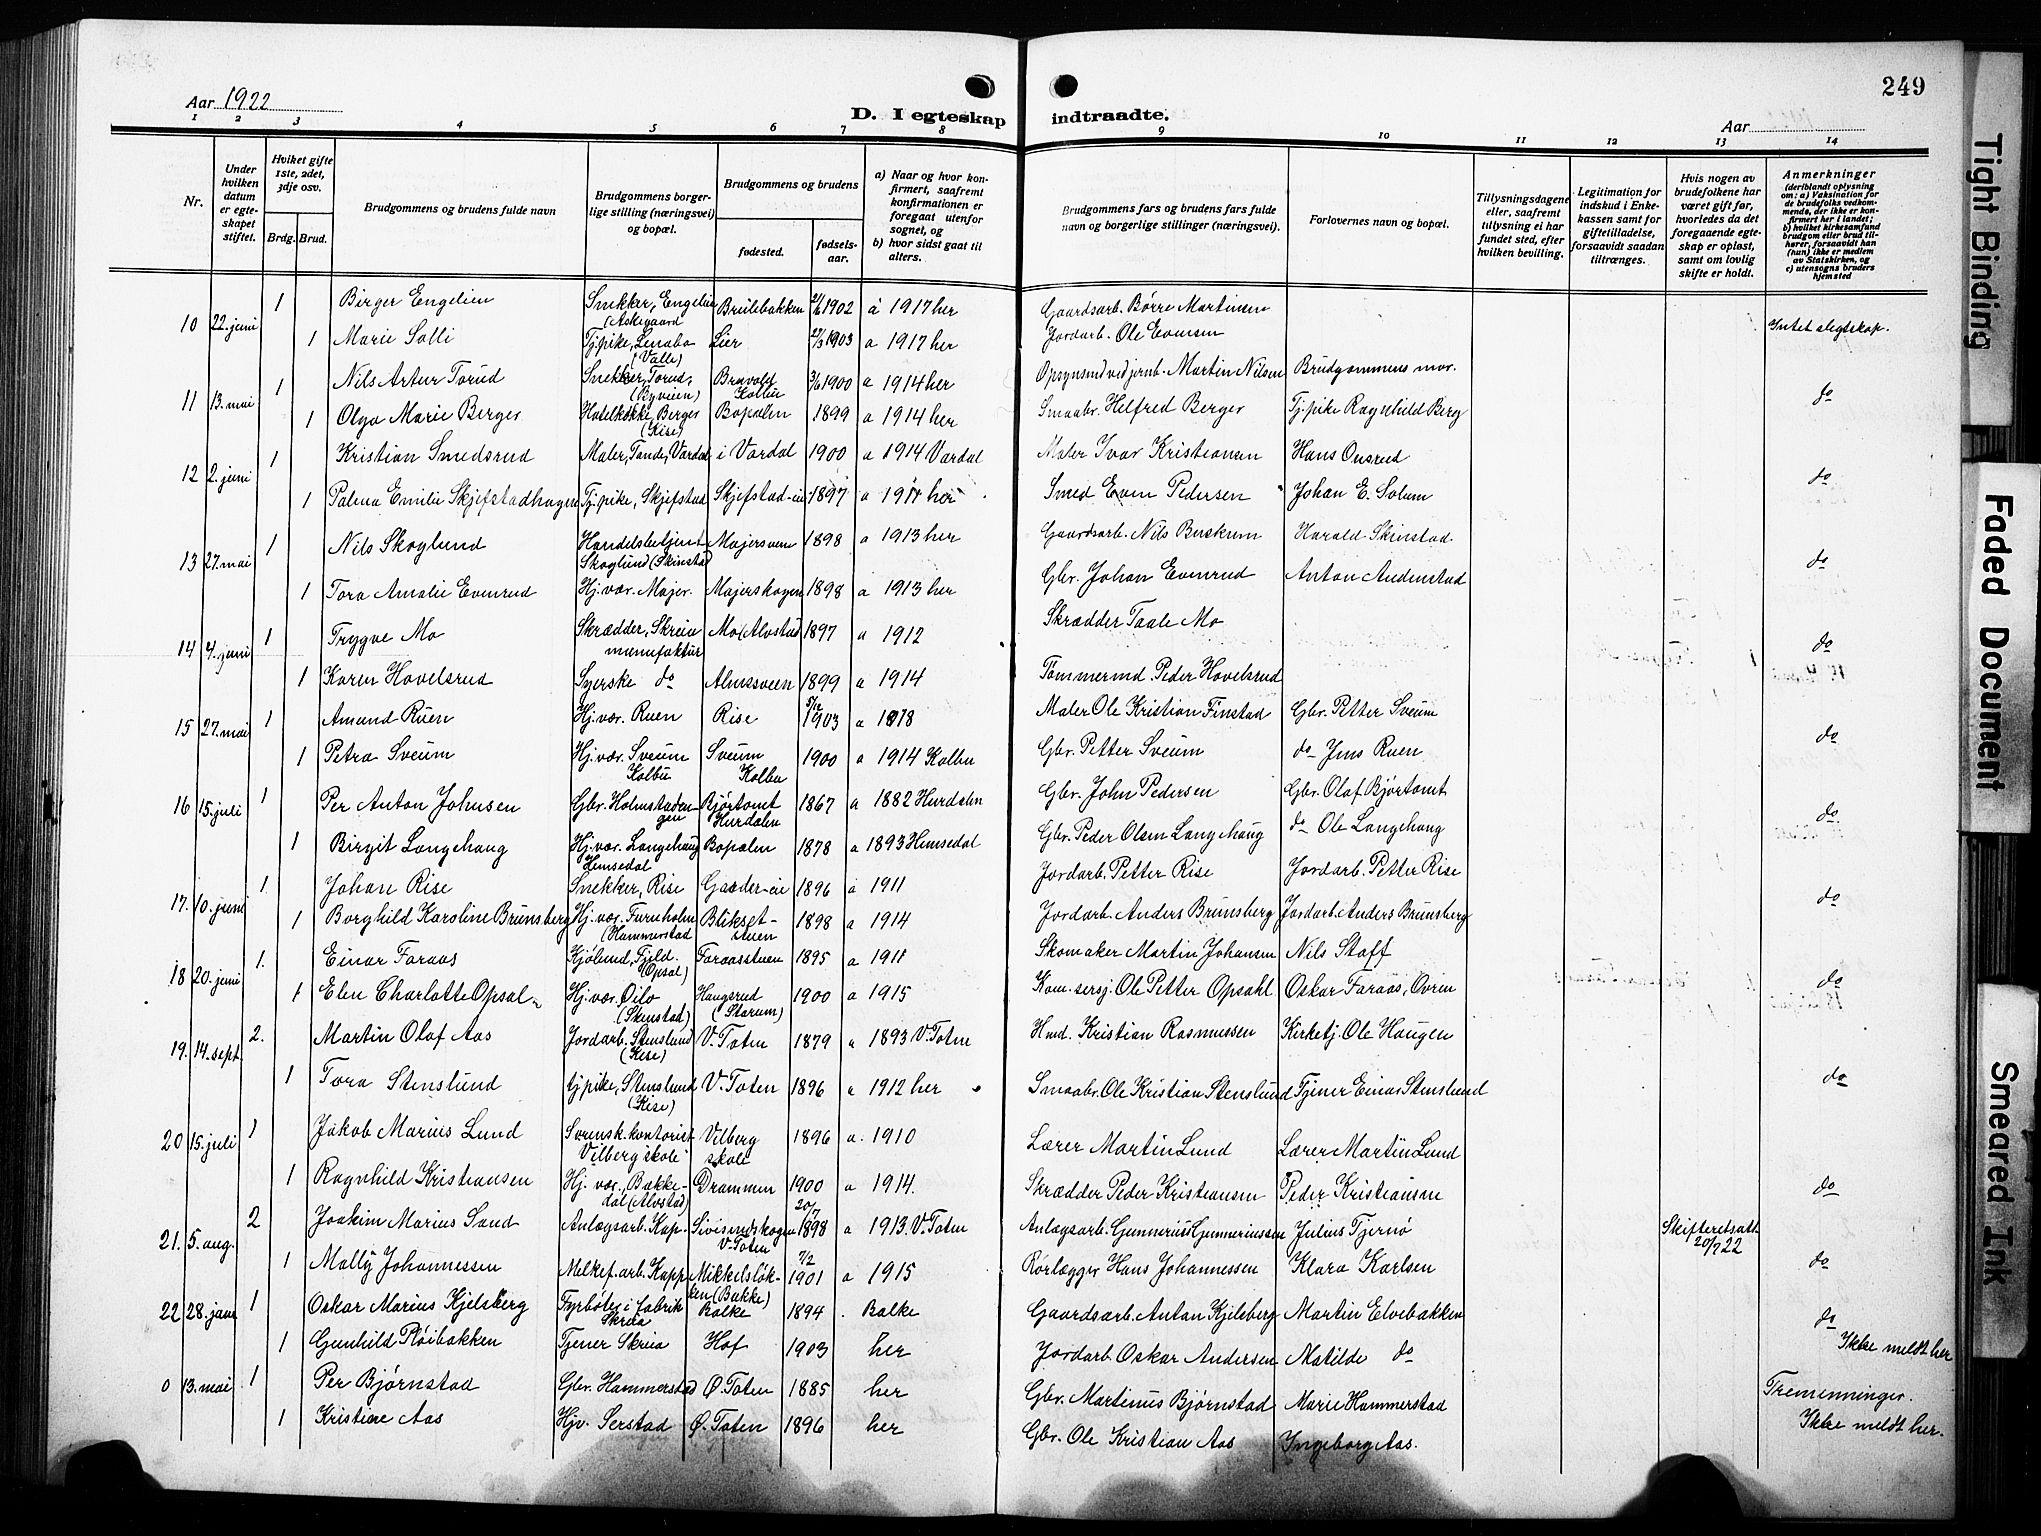 249
Aar 1922
D. I egteskap indtraadte.
Aar
1 2 3 4 5 6 7 8 9 10 11 12 13 14
Nr.
Under hvilken datum er egteskapet stiftet.
Hvilket gifte 1ste, 2det, 3dje osv.
Brdg. Brud.
Brudgommens og brudens fulde navn
Brudgommens borgerlige stilling (næringsvei) og bopæl.
Brudgommens og brudens
fødested.
fødselsaar.
a) Naar og hvor konfirmert, saafremt konfirmationen er foregaat utenfor sognet, og
b) hvor sidst gaat til alters.
Brudgommens fars og brudens fars fulde navn og borgerlige stillinger (næringsvei).
Forlovernes navn og bopæl.
Tillysningsdagene eller, saafremt tillysning ei har fundet sted, efter hvilken bevilling.
Legitimation for indskud i Enkekassen samt for giftetilladelse, forsaavidt saadan tiltrænges.
Hvis nogen av brudefolkene har været gift før, hvorledes da det foregaaende egteskap er opløst, samt om lovlig skifte er holdt.
Anmerkninger
(deriblandt oplysning om: a) Vaksination for de brudefolks vedkommende, der ikke er konfirmert her i landet; b) hvilket kirkesamfund brudgom eller brud tilhører, forsaavidt han (hun) ikke er medlem av Statskirken, og c) utensogns bruders hjemsted
10 22. juni 1 Birger Engelien Snekker, Engelien (Askegaard Brulebakken 1902 a 1917 her Gaardsarb. Børre Martinsen
1 Marie Solli Tj.pike, Lenabo (Valle) Lier 27/3 1903 a 1917 her Jordarb. Ole Evensen Intet slegtskap.
11 13. mai 1 Nils Artur Torud Snekker, Torud, (Byveien) Bravold Kolbu 3/6 1900 a 1914 her Opsynsmd ved jernb. Martin Nilsen Brudgommens mor.
1 Olga Marie Berger Hotelkokke, Berger (Kise) Bopælen 1899 a 1914 her Smaabr. Helfred Berger Tj.pike Ragnhild Berg do
12 2. juni 1 Kristian Smedsrud Maler, Tande, Vardal i Vardal 1900 a 1914 Vardal Maler Ivar Kristiansen Hans Onsrud
1 Palma Emilie Skjefstadhagen Tj.pike, Skjefstad Skjefstad-eie 1897 a 1911 her Smed Even Pedersen Johan E. Solum do
13 27. mai 1 Nils Skoglund Handelsbetjent Skoglund (Skinstad Majersveen 1898 a 1913 her Gaardsarb. Nils Buskum Harald Skinstad
1 Tora Amalie Evenrud Hj. vær. Majer. Majerskogen 1898 a 1913 her Gbr. Johan Evenrud Anton Audenstad do
14 4. juni 1 Trygve Mo Skrædder, Skreia manufaktur Mo (Alvstad 1897 a 1912 Skrædder Taale Mo
1 Karen Hovelsrud Syerske do Almssveen 1899 a 1914 Tømmermd Peder Hovelsrud do
15 27. mai 1 Amund Ruen Hj. vær. Ruen Rise 5/12 1903 a 1918 Maler Ole Kristian Finstad Gbr. Petter Sveum
1 Petra Sveum Hj. vær. Sveum Kolbu Sveum Kolbu 1900 a 1914 Kolbu Gbr. Petter Sveum do Jens Ruen do
16 15. juli 1 Per Anton Johnsen Gbr. Holmstadengen Bjørtomt Hurdalen 1867 a 1882 Hurdalen Gbr. John Pedersen Gbr. Olaf Bjørtomt
1 Birgit Langehaug Hj. vær. Langehaug Hemsedal Bopælen 1878 a 1893 Hemsedal Gbr. Peder Olsen Langehaug do Ole Langehaug do
17. 10. juni 1. Johan Rise Snekker, Rise Gaarder-eie 1896 a 1911 Jordarb. Petter Rise Jordarb. Petter Rise
1 Borghild Karoline Brunsberg Hj. vær. Furuholm (Hammerstad Blikset-stuen 1898 a 1914 Jordarb. Anders Brunsberg Jordarb. Anders Brunsberg do
18 20. juni 1. Einar Faraas Kjøbmd, Fjeld. (Opsal) Faraasstuen 1895 a 1911 Skomaker Martin Johansen Nils Staff
1 Elen Charlotte Opsal Hj. vær. Oilo (Skinstad) Haugsrud (Starum) 1900 a 1915 Kom. sersj. Ole Petter Opsahl Oskar Faraas, Øvren do
19. 14. sept. 2. Martin Olaf Aas Jordarb. Stenslund (Kise) V. Toten 1879 a 1893 V. Toten Hmd. Kristian Rasmussen Kirketj. Ole Haugen
1 Tora Stenslund tj.pike, Stenslund (Kise) V. Toten 1896 a 1912 her Smaabr. Ole Kristian Stenslund Tjener Einar Stenslund do
20 15. juli 1 Jakob Marius Lund Svensk. kontorist Vilberg skole Vilberg skole 1896 a. 1910 Lærer Martin Lund Lærer Martin Lund
1 Ragnhild Kristiansen Hj. vær. Bakkedal (Alvstad) Drammen 1900 a 1914. Skrædder Peder Kristiansen Peder Kristiansen do
21. 5. aug. 2 Joakim Marius Sand Anlægsarb. Kap V. Toten 20/7 1898 a 1913. V. Toten Anlægsarb. Gunnerius Gunneriussen Julius Tjernø Skifteretsatt. 20/7 22
1 Mally Johannessen Melkef. arb. Kapp Mikkelsløkken (Bakke) 7/2 1901 a 1915 Rørlægger Hans Johannessen Klara Karlsen do
22 28. jan. 1 Oskar Marius Kjelsberg Fyrbøter i fabrik Skreia Balke 1894 Balke Gaardsarb. Anton Kjelsberg Martin Elvebakken do
1 Gunhild Pløibakken Tjener Skreia Hof 1903 her Jordarb. Oskar Andersen Matilde do Ikke meldt her
0 13. mai 1 Per Bjørnstad Gbr. Hammerstad Ø. Toten 1885 her Gbr. Martinus Bjørnstad Marie Hammerstad Tremenninger.
1 Kristine Aas Hjv. Serstad Ø. Toten 1896 her Gbr. Ole Kristian Aas Ingeborg Aas. Ikke meldt her.
Tight Binding
Faded Document
Smeared Ink